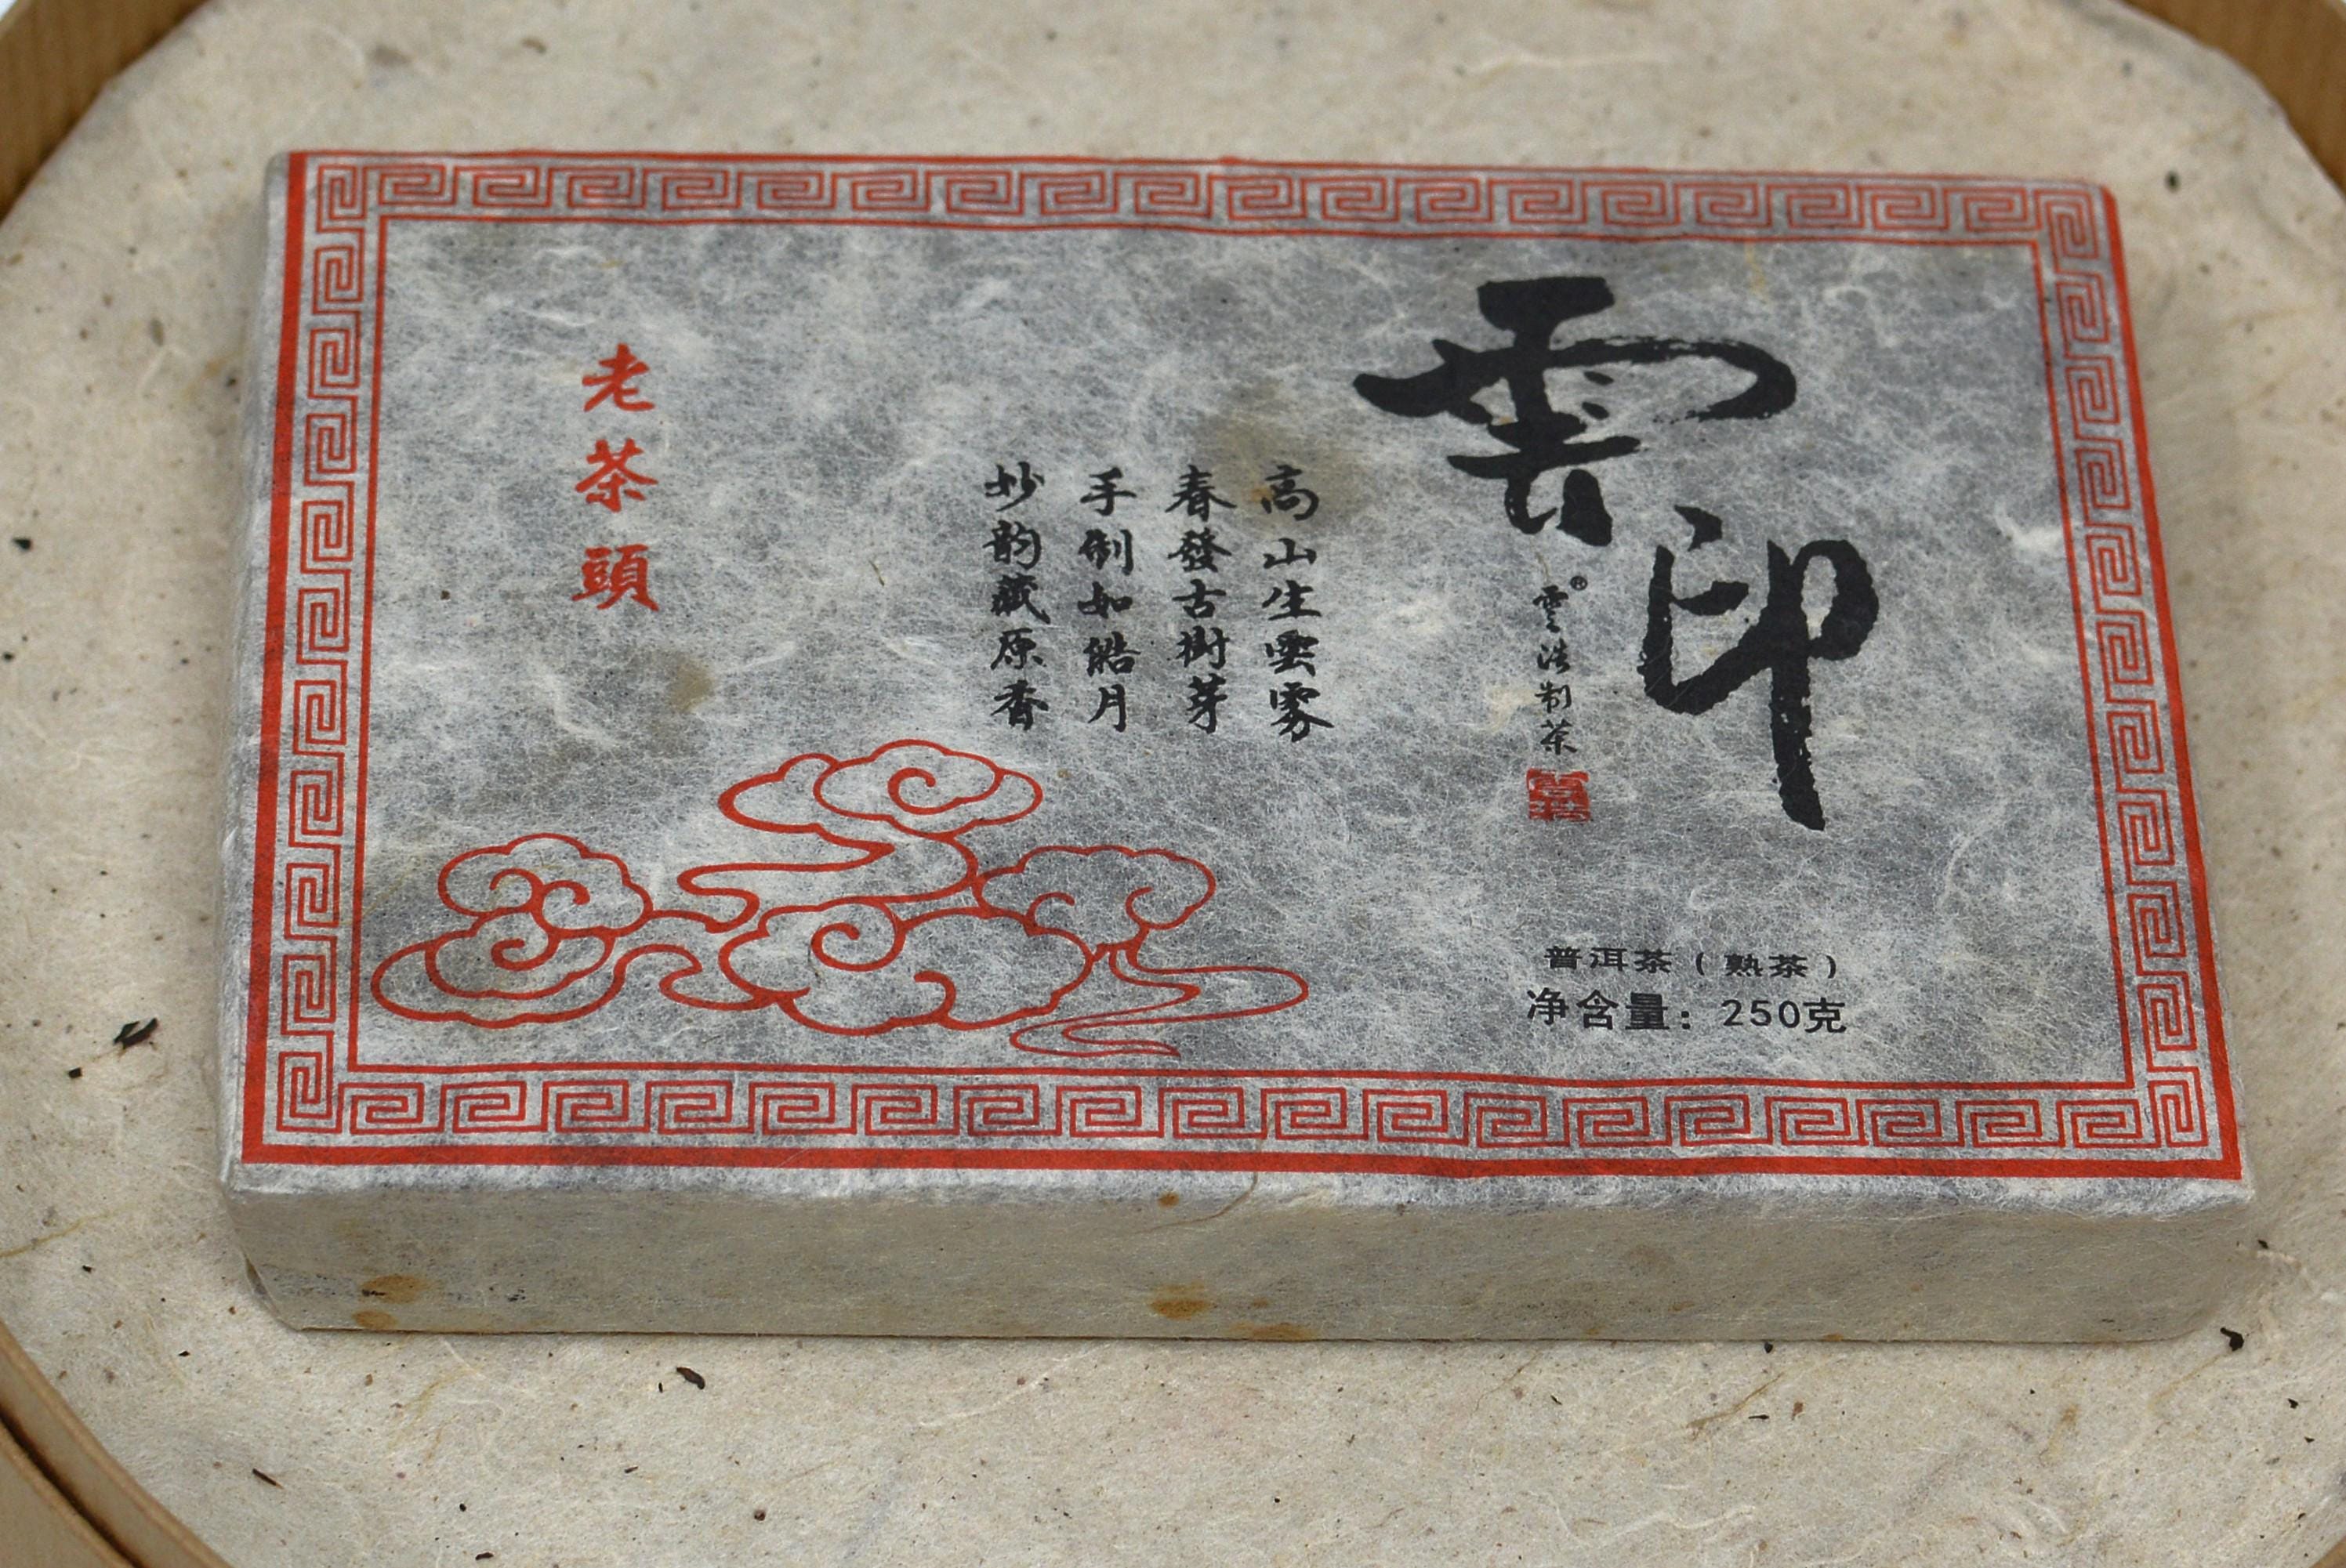 雲印
雲浩制茶
®
高山生雲雾
春發古樹芽
手制如皓月
妙韵藏原香
老茶頭
普洱茶(熟茶)
净含量:250克